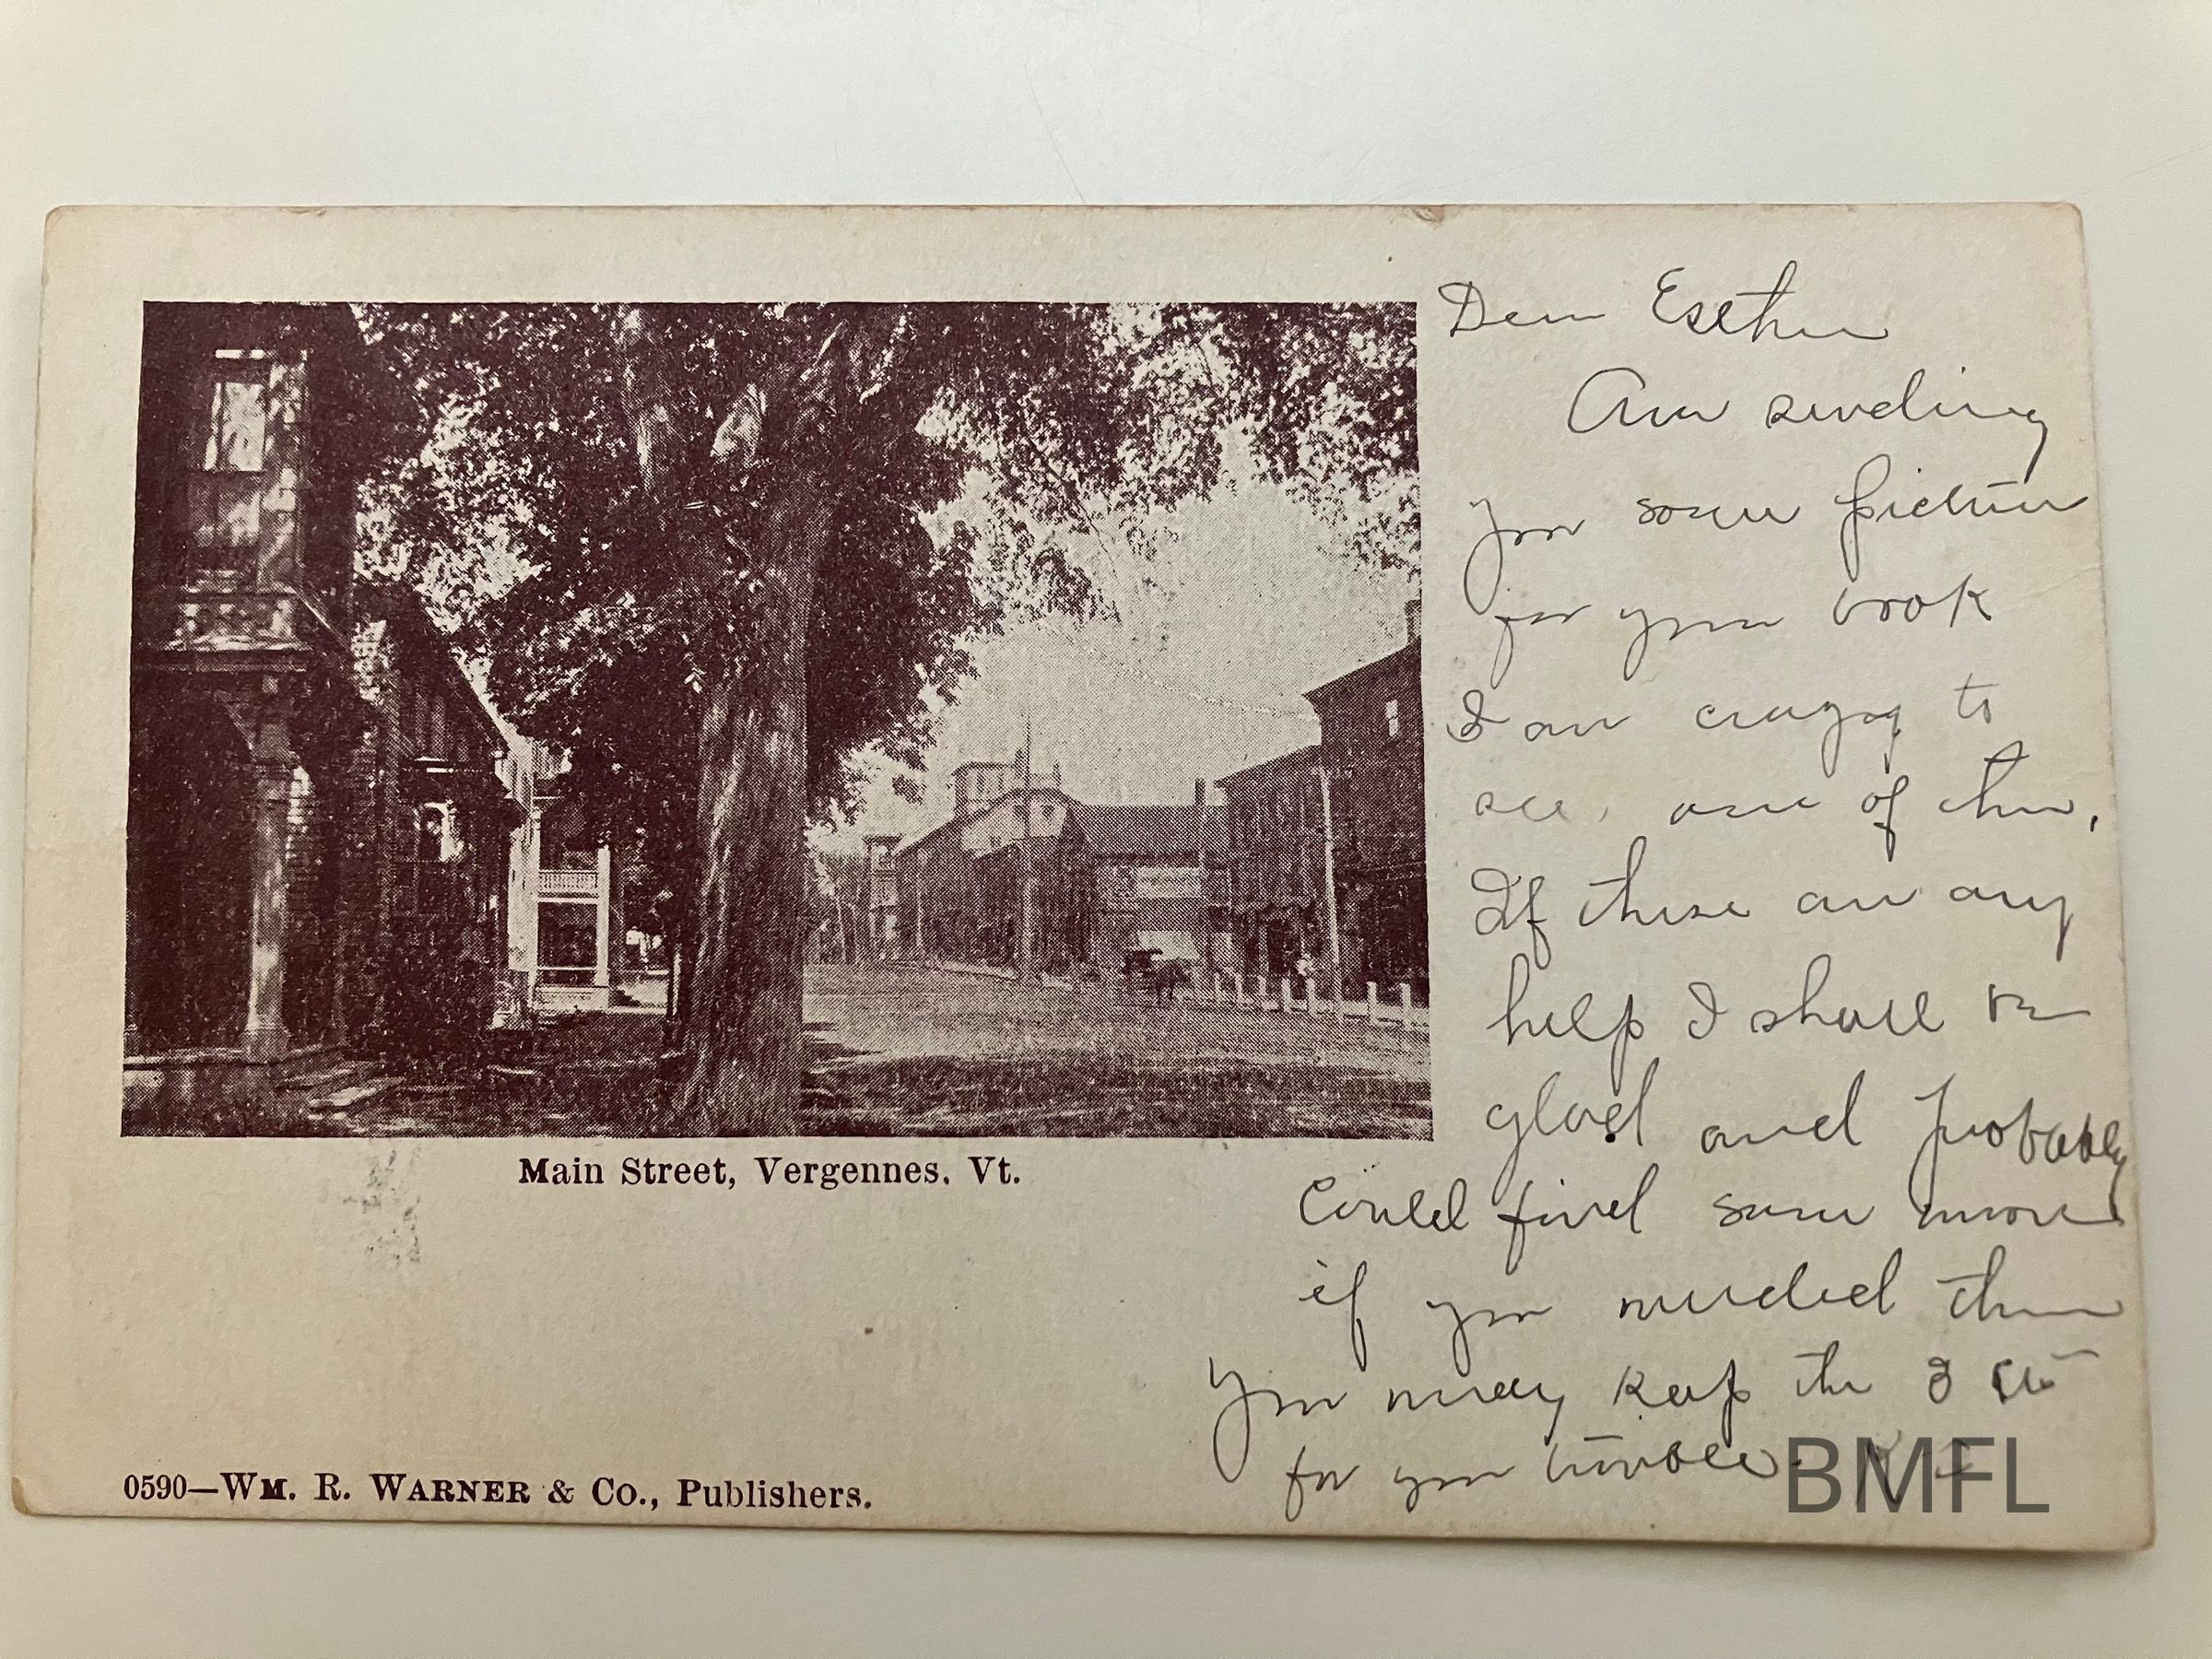 Dear Esther
Am sending
you some picture
for your book
I am crazy to
see one of them.
If these are any
help I shall be
glad and probably
could find some more
if you needed them
You may keep the
for your trouble.
Main Street, Vergennes, Vt.
0590—WM. R. WARNER & CO., Publishers.
BMFL